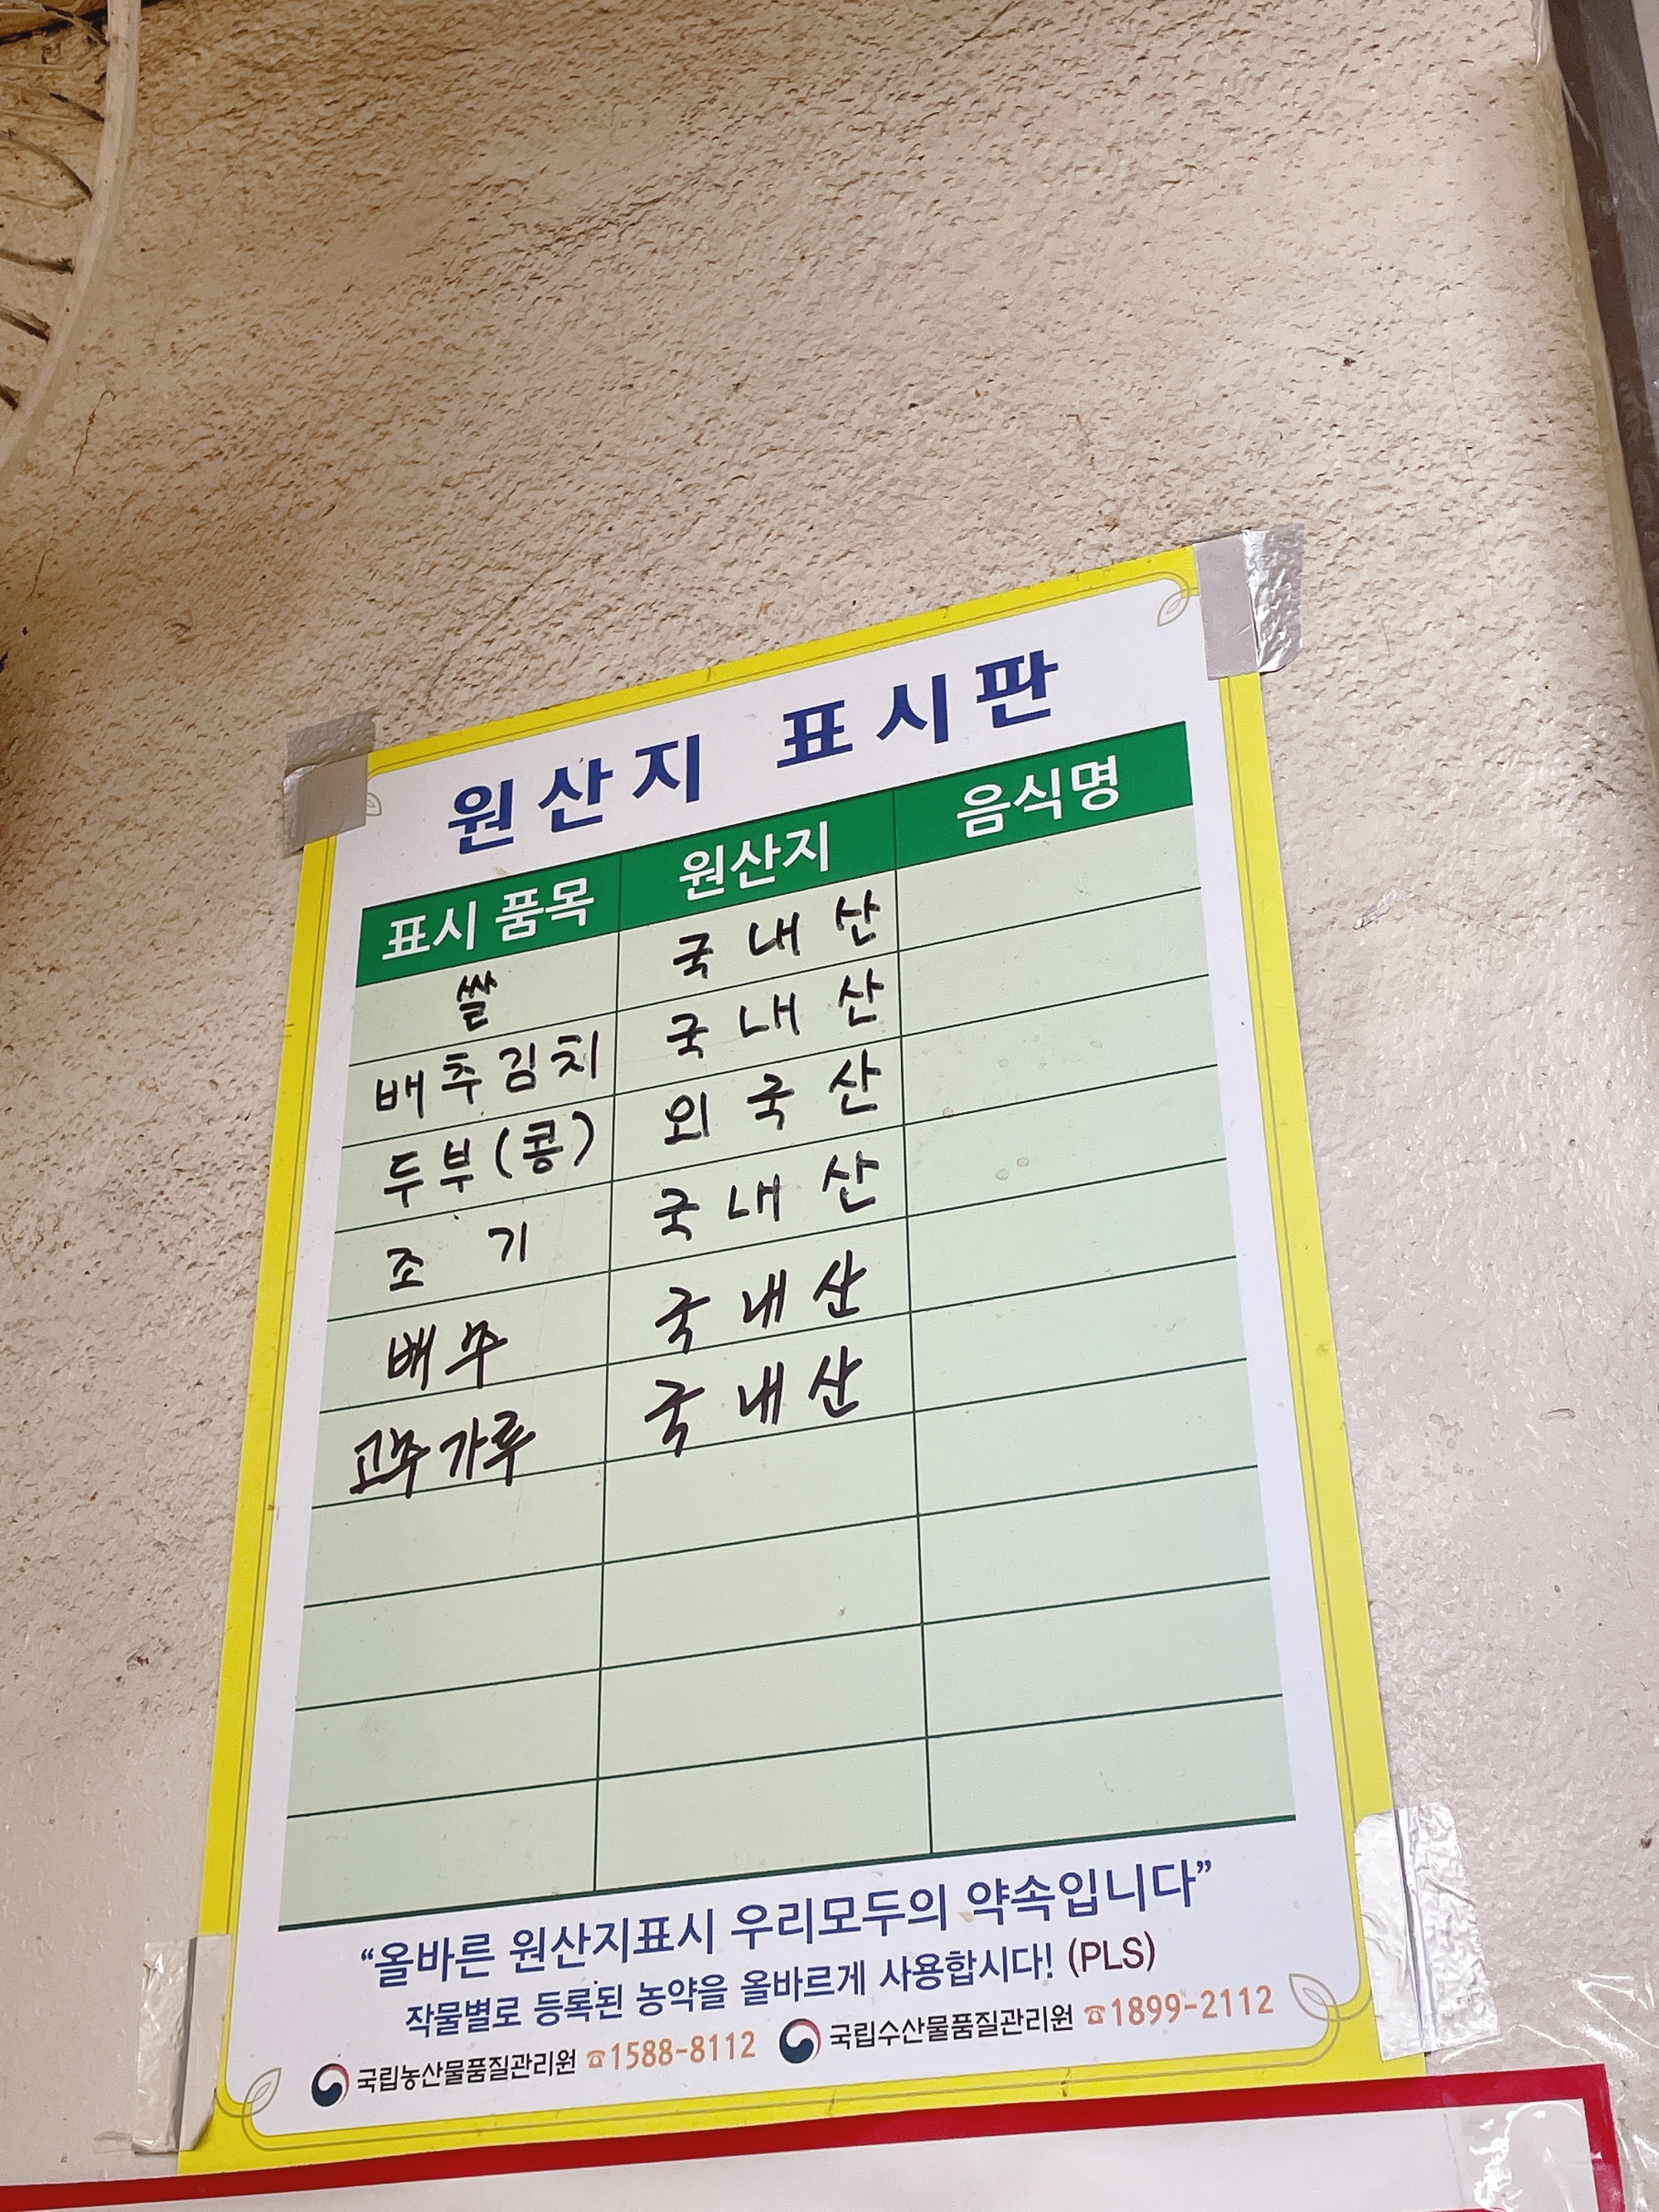 원산지 표시판
표시 품목 원산지 음식명
쌀 국내산
배추김치 국내산
두부(콩) 외국산
조기 국내산
배추 국내산
고추가루 국내산
“올바른 원산지표시 우리모두의 약속입니다”
작물별로 등록된 농약을 올바르게 사용합시다! (PLS)
국립농산물품질관리원 ☎1588-8112 국립수산물품질관리원 ☎1899-2112